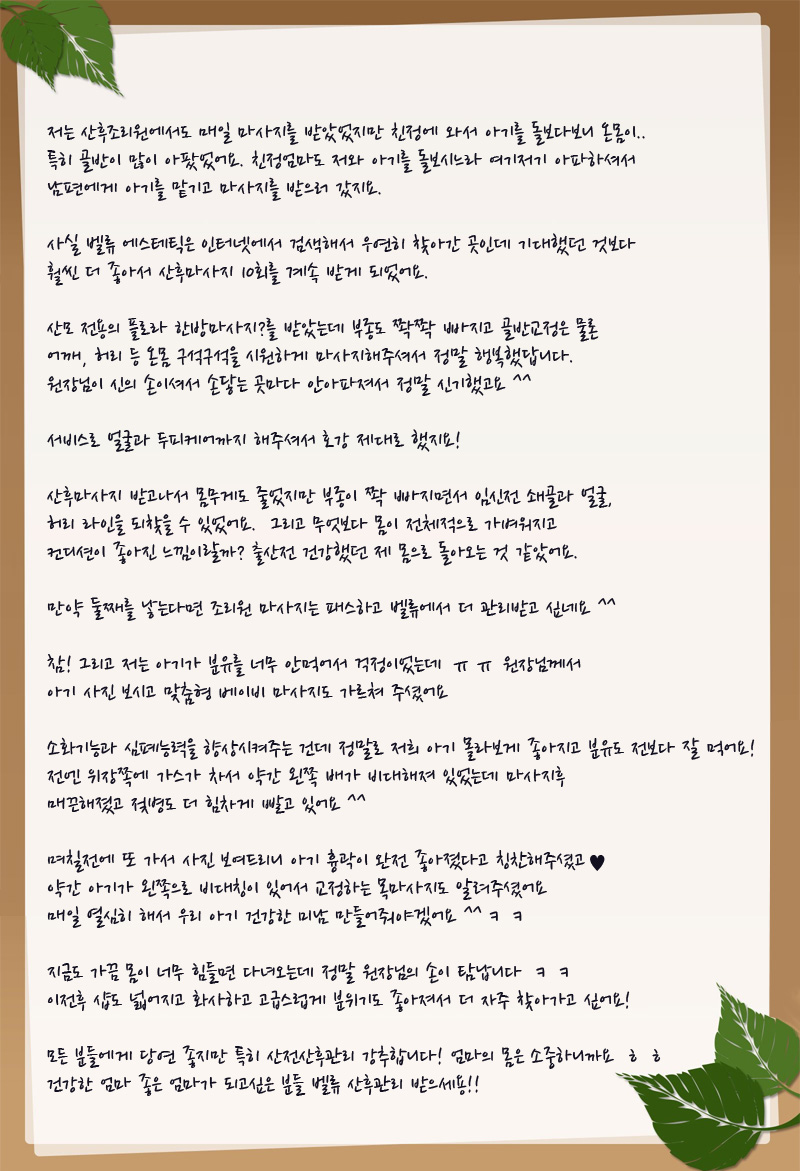 저는 산후조리원에서도 매일 마사지를 받았었지만 친정에 와서 아기를 돌보다보니 온몸이..
특히 골반이 많이 아팠었어요. 친정엄마도 저와 아기를 돌보시느라 여기저기 아파하셔서
남편에게 아기를 맡기고 마사지를 받으러 갔지요.
사실 벨류 에스테틱은 인터넷에서 검색해서 우연히 찾아간 곳인데 기대했던 것보다
훨씬 더 좋아서 산후마사지 10회를 계속 받게 되었어요.
산모 전용의 플로라 한방마사지?를 받았는데 부종도 쫙쫙 빠지고 골반교정은 물론
어깨, 허리 등 온몸 구석구석을 시원하게 마사지해주셔서 정말 행복했답니다.
원장님이 신의 손이셔서 손닿는 곳마다 안아파져서 정말 신기했고요 ^^
서비스로 얼굴과 두피케어까지 해주셔서 호강 제대로 했지요!
산후마사지 받고나서 몸무게도 줄었지만 부종이 쫙 빠지면서 임신전 쇄골과 얼굴,
허리 라인을 되찾을 수 있었어요. 그리고 무엇보다 몸이 전체적으로 가벼워지고
컨디션이 좋아진 느낌이랄까? 출산전 건강했던 제 몸으로 돌아오는 것 같았어요.
만약 둘째를 낳는다면 조리원 마사지는 패스하고 벨류에서 더 관리받고 싶네요 ^^
참! 그리고 저는 아기가 분유를 너무 안먹어서 걱정이었는데 ㅠ ㅠ 원장님께서
아기 사진 보시고 맞춤형 베이비 마사지도 가르쳐 주셨어요
소화기능과 심폐능력을 향상시켜주는 건데 정말로 저희 아기 몰라보게 좋아지고 분유도 전보다 잘 먹어요!
전엔 위장쪽에 가스가 차서 약간 왼쪽 배가 비대해져 있었는데 마사지후
매끈해졌고 젖병도 더 힘차게 빨고 있어요 ^^
며칠전에 또 가서 사진 보여드리니 아기 흉곽이 완전 좋아졌다고 칭찬해주셨고 ♥
약간 아기가 왼쪽으로 비대칭이 있어서 교정하는 목마사지도 알려주셨어요
매일 열심히 해서 우리 아기 건강한 미남 만들어줘야겠어요 ^^ ㅋ ㅋ
지금도 가끔 몸이 너무 힘들면 다녀오는데 정말 원장님의 손이 탐납니다 ㅋ ㅋ
이전후 샵도 넓어지고 화사하고 고급스럽게 분위기도 좋아져서 더 자주 찾아가고 싶어요!
모든 분들에게 당연 좋지만 특히 산전산후관리 강추합니다! 엄마의 몸은 소중하니까요 ㅎ ㅎ
건강한 엄마 좋은 엄마가 되고싶은 분들 벨류 산후관리 받으세용!!